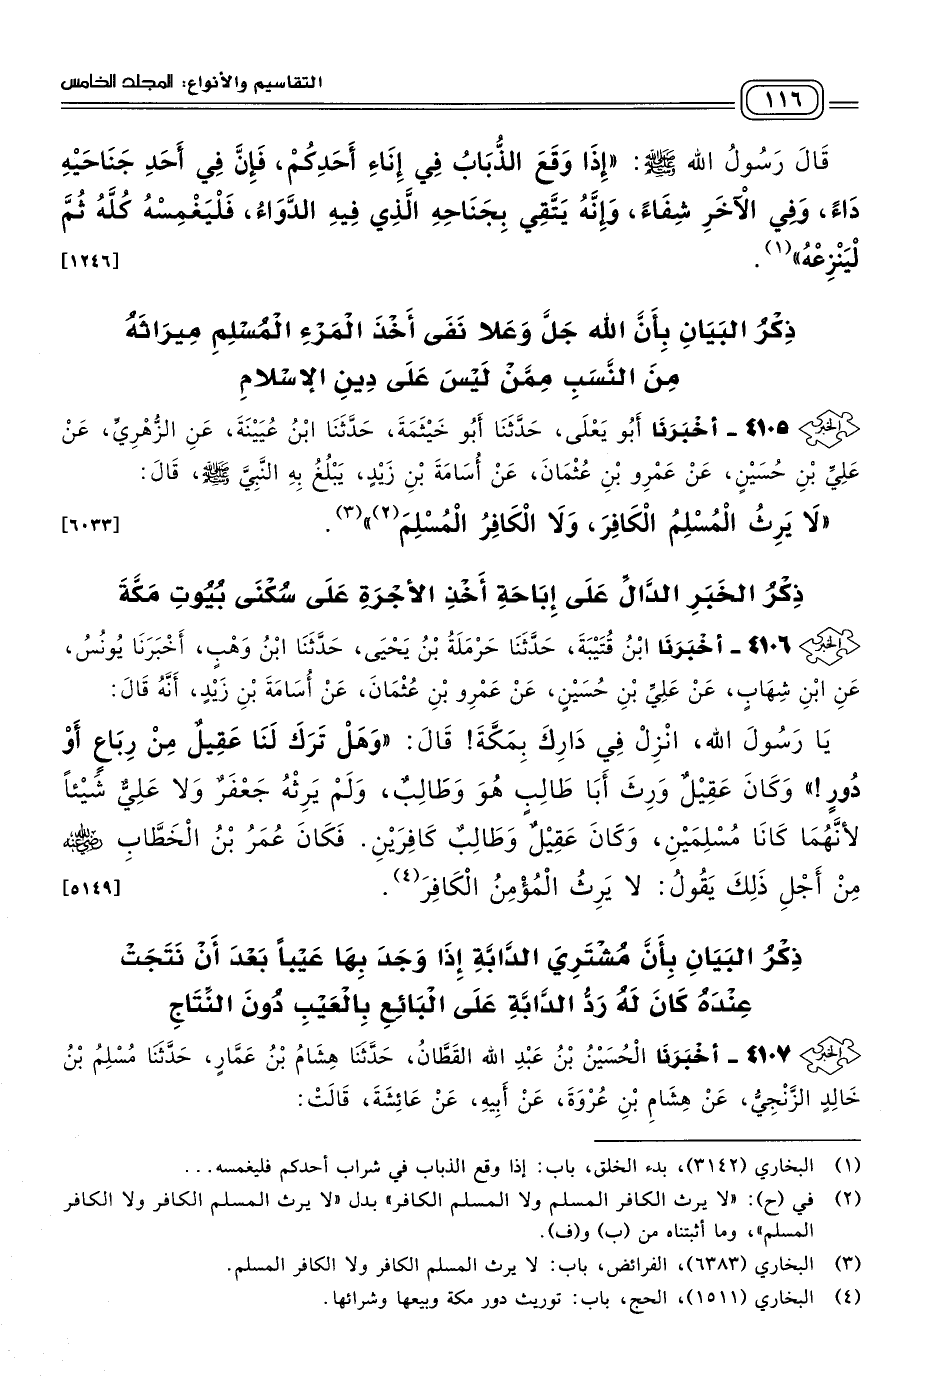 ١١٦ التقاسيم والأنواع: المجلد الخامس
قَالَ رَسُولُ الله ﷺ: «إِذَا وَقَعَ الذُّبَابُ فِي إِنَاءِ أَحَدِكُمْ، فَإِنَّ فِي أَحَدِ جَنَاحَيْهِ
دَاءً، وَفِي الْآخَرِ شِفَاءً، وَإِنَّهُ يَتَّقِي بِجَنَاحِهِ الَّذِي فِيهِ الدَّوَاءُ، فَلْيَغْمِسْهُ كُلَّهُ ثُمَّ
لْيَنْزِعْهُ»(١). [١٢٤٦]
ذِكْرُ البَيَانِ بِأَنَّ الله جَلَّ وَعَلا نَفَى أَخْذَ الْمَرْءِ الْمُسْلِمِ مِيرَاثَهُ
مِنَ النَّسَبِ مِمَّنْ لَيْسَ عَلَى دِينِ الإِسْلامِ
٤١٠٥ - أخْبَرَنَا أَبُو يَعْلَى، حَدَّثَنَا أَبُو خَيْثَمَةَ، حَدَّثَنَا ابْنُ عُيَيْنَةَ، عَنِ الزُّهْرِيِّ، عَنْ
عَلِيِّ بْنِ حُسَيْنٍ، عَنْ عَمْرِو بْنِ عُثْمَانَ، عَنْ أُسَامَةَ بْنِ زَيْدٍ، يَبْلُغُ بِهِ النَّبِيَّ ﷺ، قَالَ:
«لَا يَرِثُ الْمُسْلِمُ الْكَافِرَ، وَلَا الْكَافِرُ الْمُسْلِمَ(٢)»(٣). [٦٠٣٣]
ذِكْرُ الخَبَرِ الدَّالِّ عَلَى إِبَاحَةِ أَخْذِ الأجْرَةِ عَلَى سُكْنَى بُيُوتِ مَكَّةَ
٤١٠٦ - أخْبَرَنَا ابْنُ قُتَيْبَةَ، حَدَّثَنَا حَرْمَلَةُ بْنُ يَحْيَى، حَدَّثَنَا ابْنُ وَهْبٍ، أَخْبَرَنَا يُونُسُ،
عَنِ ابْنِ شِهَابٍ، عَنْ عَلِيِّ بْنِ حُسَيْنٍ، عَنْ عَمْرِو بْنِ عُثْمَانَ، عَنْ أُسَامَةَ بْنِ زَيْدٍ، أَنَّهُ قَالَ:
يَا رَسُولَ الله، انْزِلْ فِي دَارِكَ بِمَكَّةَ! قَالَ: «وَهَلْ تَرَكَ لَنَا عَقِيلٌ مِنْ رِبَاعٍ أَوْ
دُورٍ!» وَكَانَ عَقِيلٌ وَرِثَ أَبَا طَالِبٍ هُوَ وَطَالِبٌ، وَلَمْ يَرِثْهُ جَعْفَرٌ وَلا عَلِيٌّ شَيْئاً
لأَنَّهُمَا كَانَا مُسْلِمَيْنِ، وَكَانَ عَقِيلٌ وَطَالِبٌ كَافِرَيْنِ. فَكَانَ عُمَرُ بْنُ الْخَطَّابِ رضي الله عنه
مِنْ أَجْلِ ذَلِكَ يَقُولُ: لا يَرِثُ الْمُؤْمِنُ الْكَافِرَ(٤). [٥١٤٩]
ذِكْرُ البَيَانِ بِأَنَّ مُشْتَرِيَ الدَّابَّةِ إِذَا وَجَدَ بِهَا عَيْباً بَعْدَ أَنْ نَتَجَتْ
عِنْدَهُ كَانَ لَهُ رَدُّ الدَّابَّةِ عَلَى الْبَائِعِ بِالْعَيْبِ دُونَ النِّتَاجِ
٤١٠٧ - أخْبَرَنَا الْحُسَيْنُ بْنُ عَبْدِ الله القَطَّانُ، حَدَّثَنَا هِشَامُ بْنُ عَمَّارٍ، حَدَّثَنَا مُسْلِمُ بْنُ
خَالِدٍ الزَّنْجِيُّ، عَنْ هِشَامِ بْنِ عُرْوَةَ، عَنْ أَبِيهِ، عَنْ عَائِشَةَ، قَالَتْ:
(١) البخاري (٣١٤٢)، بدء الخلق، باب: إذا وقع الذباب في شراب أحدكم فليغمسه...
(٢) في (ح): «لا يرث الكافر المسلم ولا المسلم الكافر» بدل «لا يرث المسلم الكافر ولا الكافر
المسلم»، وما أثبتناه من (ب) و(ف).
(٣) البخاري (٦٣٨٣)، الفرائض، باب: لا يرث المسلم الكافر ولا الكافر المسلم.
(٤) البخاري (١٥١١)، الحج، باب: توريث دور مكة وبيعها وشرائها.